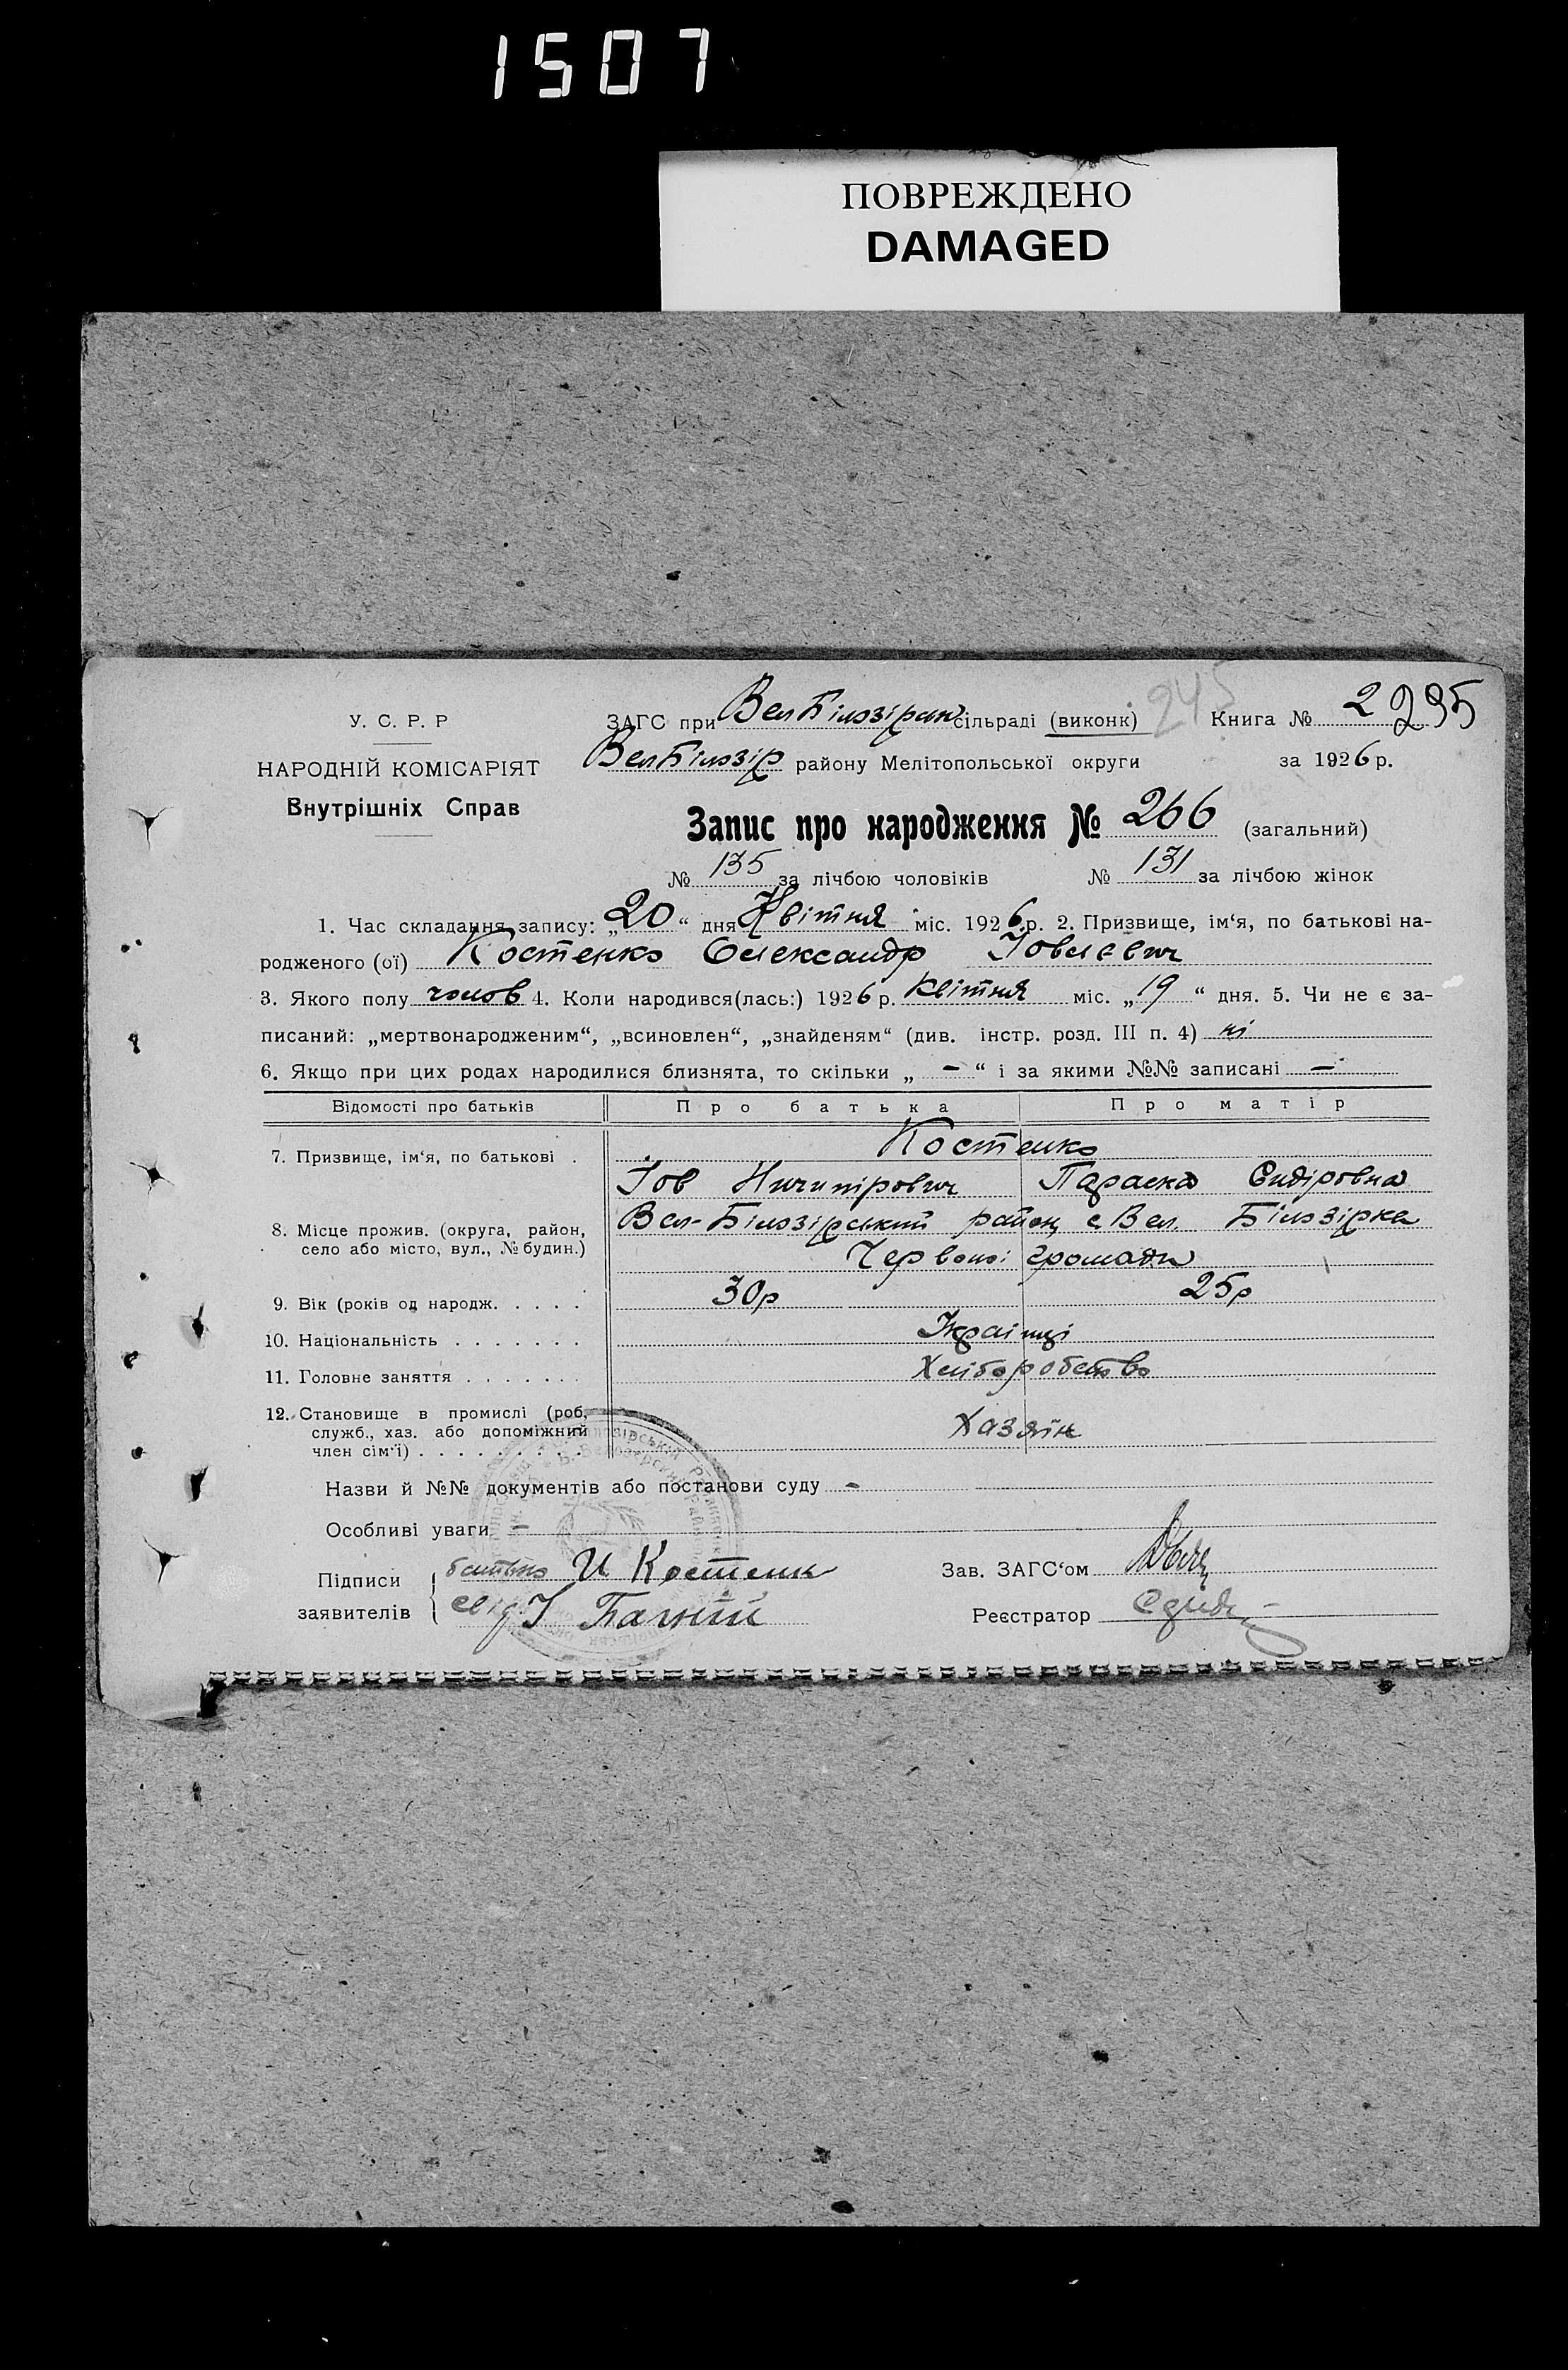 1507
ПОВРЕЖДЕНО
DAMAGED
У. С. Р. Р
НАРОДНІЙ КОМІСАРІЯТ
Внутрішніх Справ
ЗАГС при Вел Білозірск сільраді (виконк) 245 Книга № 2 295
Вел Білозір району Мелітопольської округи за 1926 р.
Запис про народження № 266 (загальний)
№ 135 за лічбою чоловіків № 131 за лічбою жінок
1. Час складання запису: „20“ дня Квітня міс. 1926 р. 2. Призвище, ім‘я, по батькові на-
родженого (ої) Костенко Олександр Іовлєвич
3. Якого полу чолов 4. Коли народився(лась:) 1926 р. Квітня міс. „19“ дня. 5. Чи не є за-
писаний: „мертвонародженим“, „всиновлен“, „знайденям“ (див. інстр. розд. III п. 4) ні
6. Якщо при цих родах народилися близнята, то скільки „ - “ і за якими №№ записані -
Відомості про батьків Про батька Про матір
7. Призвище, ім‘я, по батькові . Костенко
Іов Ничипірович Параска Сидіровна
8. Місце прожив. (округа, район, село або місто, вул., № будин.) Вел-Білозірський район, с Вел. Білозірка
Червоної громади
9. Вік (років од народж. . . . . 30р 25р
10. Національність . . . . . . . Українці
11. Головне заняття . . . . . . . Хліборобство
12. Становище в промислі (роб, служб., хаз. або допоміжний член сім‘ї) . . . . . . . . . Хазяїн
Назви й №№ документів або постанови суду -
Особливі уваги -
Підписи заявителів { батько И Костенк
свід
Зав. ЗАГС‘ом
Реєстратор